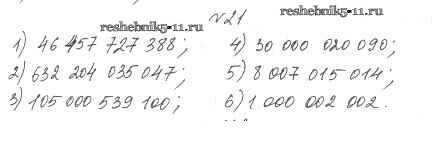 reshebnik5-11.ru
№21
reshebnik5-11.ru
1) 46 457 727 388;
4) 30 000 020 090;
2) 632 204 035 047;
5) 8 007 015 014;
3) 105 000 539 100;
6) 1 000 002 002.